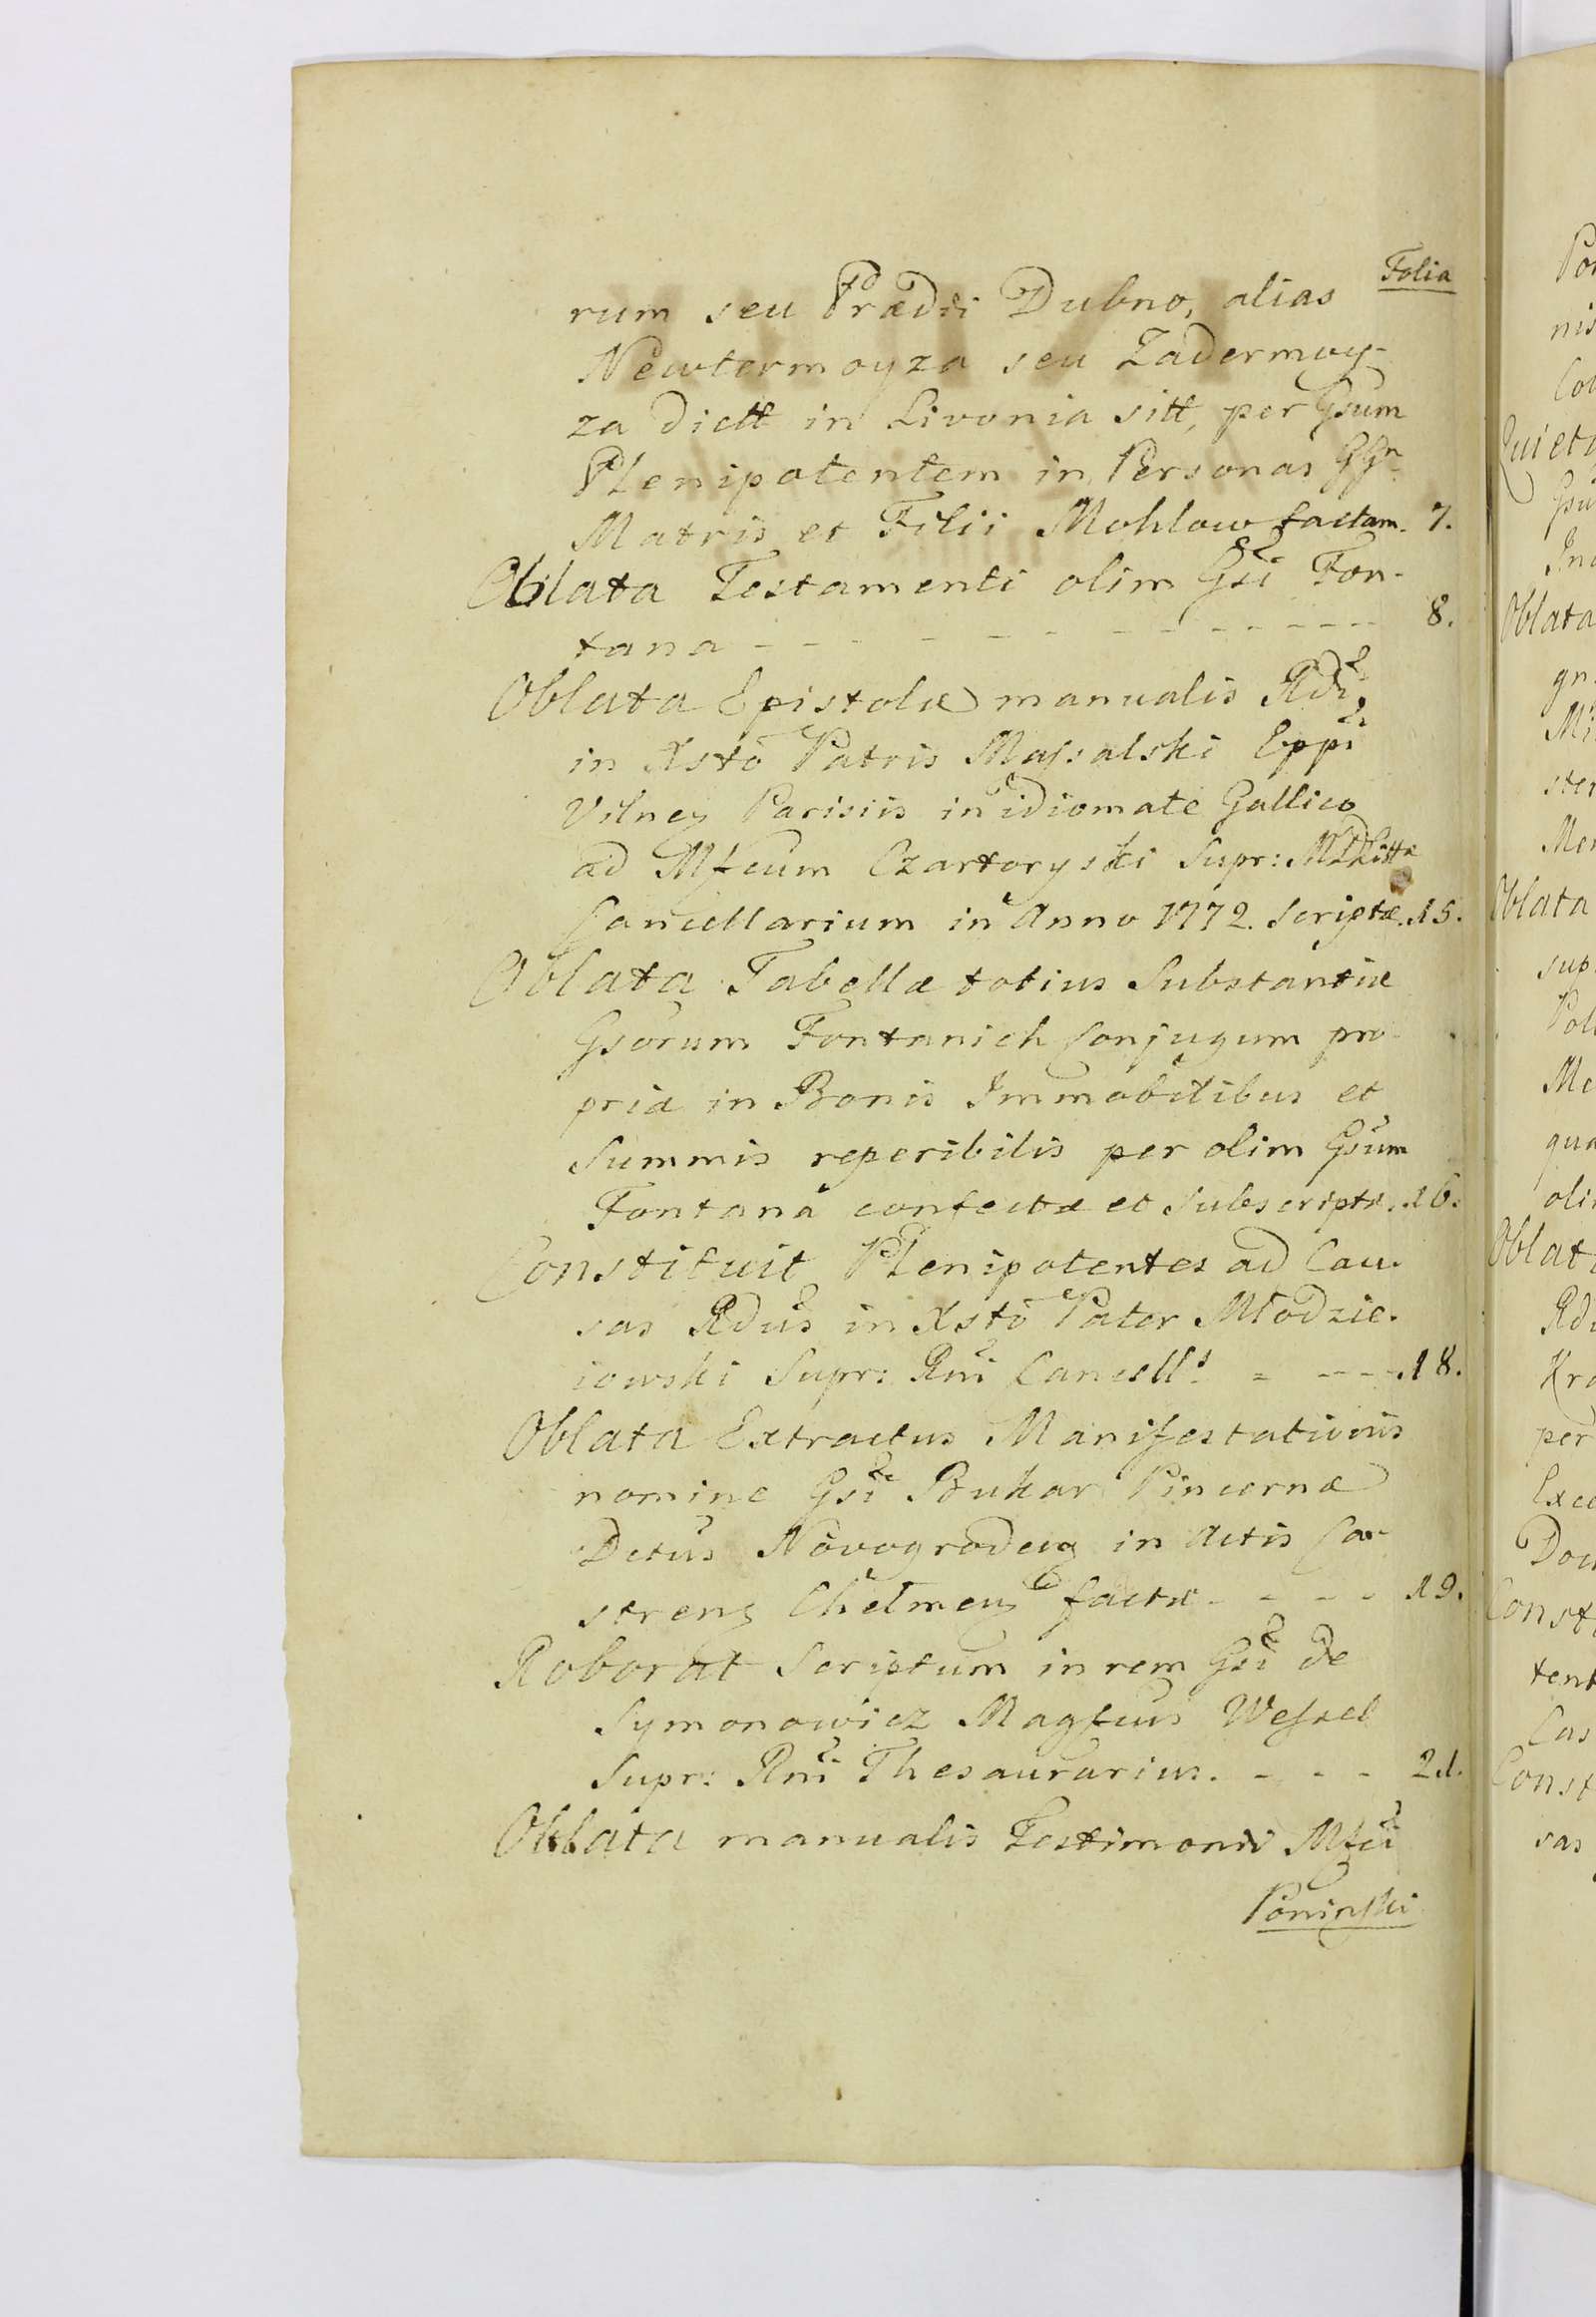 Folia
rum seu Prædii Dubno, alias
Newtermoyza seu Zadermoy-
za dictt in Livonia sitt, per Gsum
Plenipotentem in Personas GGn.
Matris et Filii Mohlow factam. 7.
Oblata Testamenti olim Gsi Fon-
tana - - - - - - - - - - 8.
Oblata Epistolæ manualis Rdi
in Xsto Patris Massalski Eppi
Vilnen Parisiis in idiomate Gallico
ad Mfcum Czartoryski Supr: M.D.Litt
Cancellarium in Anno 1772. Scriptæ. 15.
Oblata Tabellæ totius Substantiæ
Gsorum Fontanich Conjugum pro-
priæ in Bonis Immobilibus et
Summis reperibilis per olim Gsum
Fontana confectæ et Subscriptæ. 16.
Constituit Plenipotentes ad Cau-
sas Rdus in Xsto Pater Młodzie-
iowski Supr: Rni Cancells. - - - - 18.
Oblata Extractus Manifestationis
nomine Gsi Bukar Pincernæ
Dctus Novogroden in Actis Ca-
stren Chelmen factæ - - - - 19.
Roborat Scriptum in rem Gsi de
Symonowicz Magfcus Wessel
Supr: Rni Thesaurarius. - - - 21.
Oblata manualis Testimonii Mfci
Poninski
Quieta
Oblata
Mi
ster
Oblata
sup
Pol
olim
Oblata
per
Const
tent
Const
sas